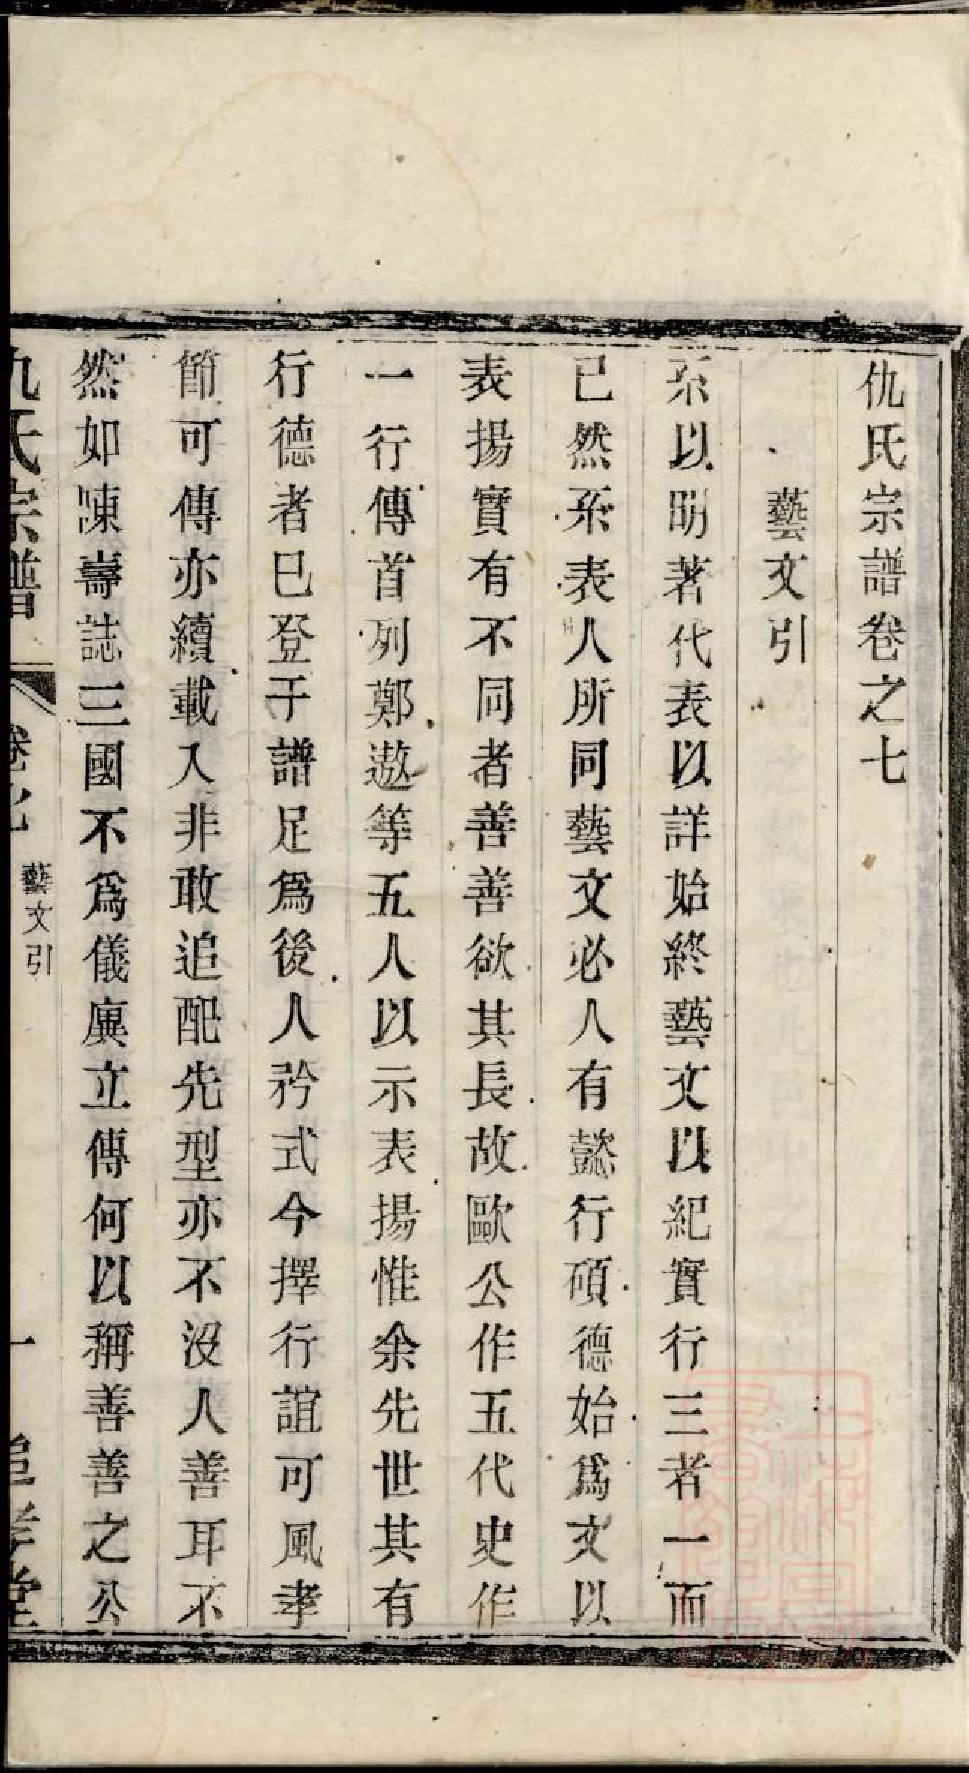 仇氏宗譜卷之七
藝文引
系以明著代表以詳始終藝文以紀實行三者一而
已然系表人所同藝文必人有懿行碩德始爲文以
表揚實有不同者善善欲其長故歐公作五代史作
一行傳首列鄭遨等五人以示表揚惟余先世其有
行德者已登于譜足爲後人矜式今擇行誼可風孝
節可傳亦續載入非敢追配先型亦不沒人善耳不
然如陳壽誌三國不爲儀廙立傳何以稱善善之公
仇氏宗譜
卷之七
藝文引
一
追孝堂